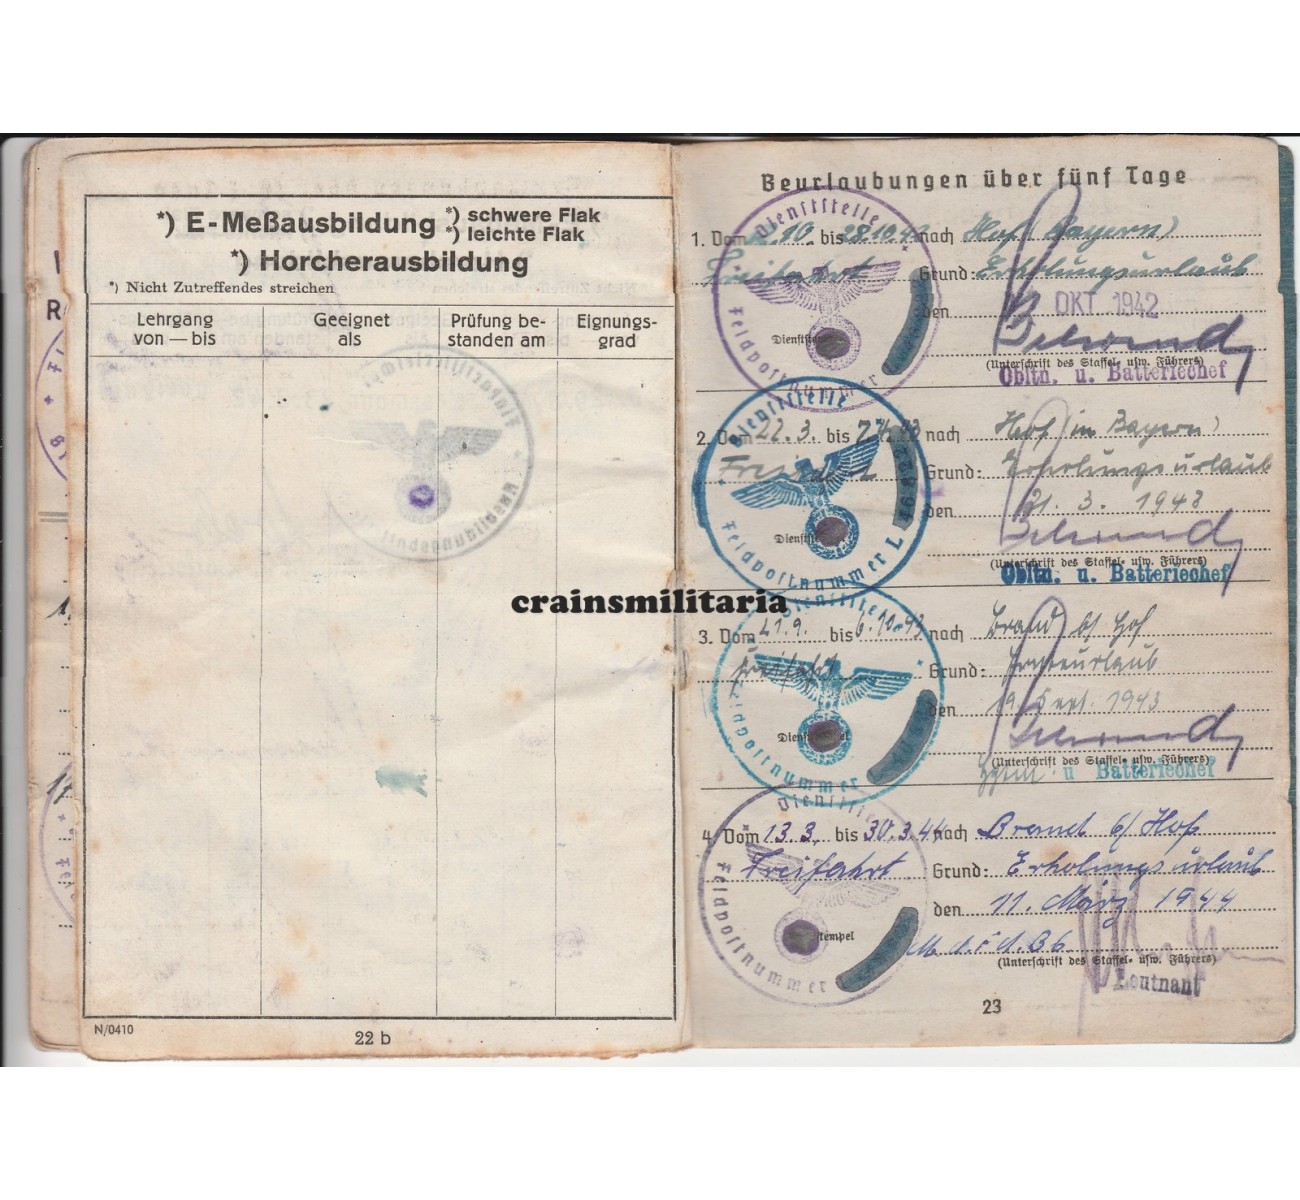 *) E-Meßausbildung *) schwere Flak
*) leichte Flak
*) Horcherausbildung
*) Nicht Zutreffendes streichen
Lehrgang von — bis
Geeignet als
Prüfung bestanden am
Eignungsgrad
N/0410
22 b
crainsmilitaria
Beurlaubungen über fünf Tage
1. Vom 10. bis 28.10.42 nach Hof (Bayern)
Freifahrt Grund: Erholungsurlaub
den OKT 1942
Dienststelle
Feldpostnummer
(Unterschrift des Staffel- usw. Führers)
Obltn. u. Batteriechef
2. Vom 22.3. bis nach Hof (in Bayern)
Grund: Erholungsurlaub
den 21. 3. 1943
Dienststelle
Feldpostnummer L
(Unterschrift des Staffel- usw. Führers)
Obltn. u. Batteriechef
3. Vom 21.9. bis 6.10.43 nach Brand b/ Hof
Freifahrt Grund:
den 19. Sept. 1943
Dienststelle
Feldpostnummer
(Unterschrift des Staffel- usw. Führers)
u Batteriechef
4. Vom 13.3. bis 30.3.44 nach b/ Hof
Freifahrt Grund: Erholungsurlaub
den 11. März 1944
Dienststelle
Feldpostnummer
(Unterschrift des Staffel- usw. Führers)
Leutnant
23